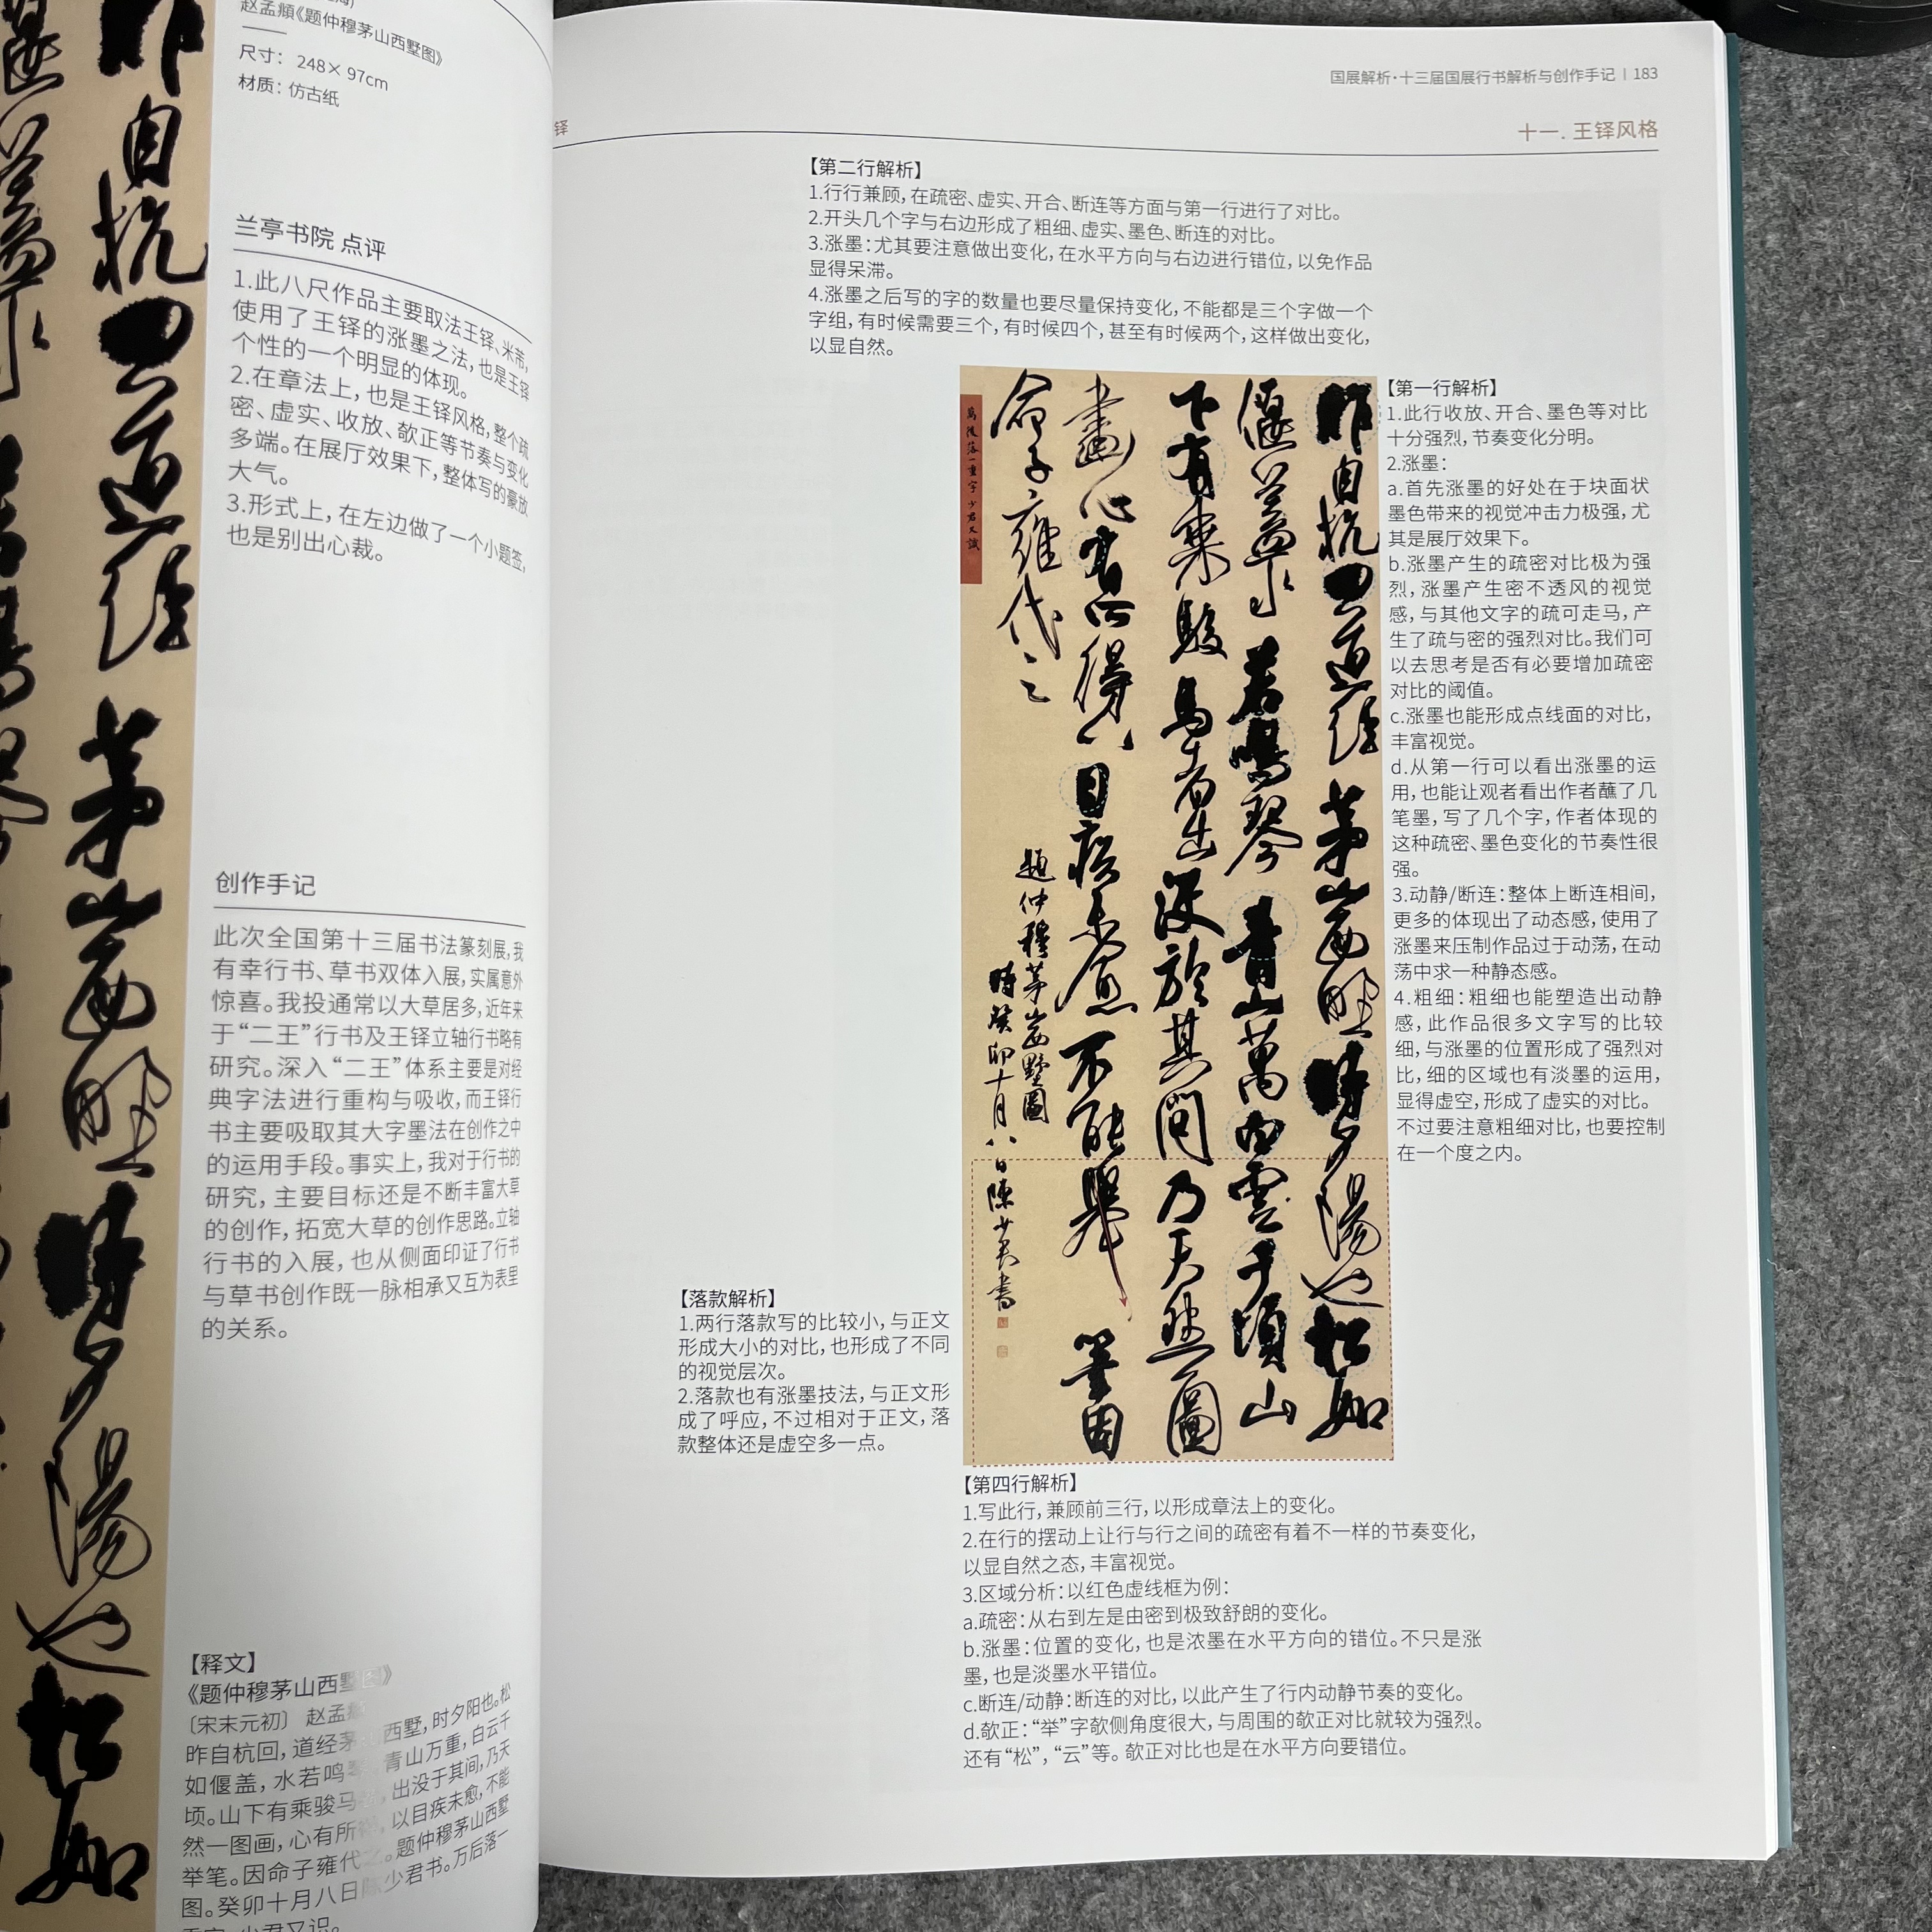 赵孟頫《题仲穆茅山西墅图》
尺寸： 248×97cm
材质：仿古纸
兰亭书院 点评
1.此八尺作品主要取法王铎、米芾，
使用了王铎的涨墨之法，也是王铎
个性的一个明显的体现。
2.在章法上，也是王铎风格，整个疏
密、虚实、收放、欹正等节奏与变化
多端。在展厅效果下，整体写的豪放
大气。
3.形式上，在左边做了一个小题签，
也是别出心裁。
创作手记
此次全国第十三届书法篆刻展，我
有幸行书、草书双体入展，实属意外
惊喜。我投通常以大草居多，近年来
于“二王”行书及王铎立轴行书略有
研究。深入“二王”体系主要是对经
典字法进行重构与吸收，而王铎行
书主要吸取其大字墨法在创作之中
的运用手段。事实上，我对于行书的
研究，主要目标还是不断丰富大草
的创作，拓宽大草的创作思路。立轴
行书的入展，也从侧面印证了行书
与草书创作既一脉相承又互为表里
的关系。
【释文】
《题仲穆茅山西墅图》
〔宋末元初〕 赵孟
昨自杭回，道经茅 西墅，时夕阳也。松
如偃盖，水若鸣 青山万重，白云千
顷。山下有乘骏马 ，出没于其间，乃天
然一图画，心有所 ，以目疾未愈，不能
举笔。因命子雍代 。题仲穆茅山西墅
图。癸卯十月八日 少君书。万后落一
重字，少君又识。
国展解析·十三届国展行书解析与创作手记 | 183
铎
十一. 王铎风格
【第二行解析】
1.行行兼顾，在疏密、虚实、开合、断连等方面与第一行进行了对比。
2.开头几个字与右边形成了粗细、虚实、墨色、断连的对比。
3.涨墨：尤其要注意做出变化，在水平方向与右边进行错位，以免作品
显得呆滞。
4.涨墨之后写的字的数量也要尽量保持变化，不能都是三个字做一个
字组，有时候需要三个，有时候四个，甚至有时候两个，这样做出变化，
以显自然。
【第一行解析】
1.此行收放、开合、墨色等对比
十分强烈，节奏变化分明。
2.涨墨：
a.首先涨墨的好处在于块面状
墨色带来的视觉冲击力极强，尤
其是展厅效果下。
b.涨墨产生的疏密对比极为强
烈，涨墨产生密不透风的视觉
感，与其他文字的疏可走马，产
生了疏与密的强烈对比。我们可
以去思考是否有必要增加疏密
对比的阈值。
c.涨墨也能形成点线面的对比，
丰富视觉。
d.从第一行可以看出涨墨的运
用，也能让观者看出作者蘸了几
笔墨，写了几个字，作者体现的
这种疏密、墨色变化的节奏性很
强。
3.动静/断连：整体上断连相间，
更多的体现出了动态感，使用了
涨墨来压制作品过于动荡，在动
荡中求一种静态感。
4.粗细：粗细也能塑造出动静
感，此作品很多文字写的比较
细，与涨墨的位置形成了强烈对
比，细的区域也有淡墨的运用，
显得虚空，形成了虚实的对比。
不过要注意粗细对比，也要控制
在一个度之内。
昨自杭回道經茅山西墅時夕陽也松如
偃蓋水若鳴琴青山萬白雲千頃山
下有乘駿馬者出沒於其間乃天然一圖
畫心有所得以目疾未愈不能舉筆因
命子雍代之
題仲穆茅山西墅圖
時癸卯十月八日陳少君書
萬後落一重字少君又識
【落款解析】
1.两行落款写的比较小，与正文
形成大小的对比，也形成了不同
的视觉层次。
2.落款也有涨墨技法，与正文形
成了呼应，不过相对于正文，落
款整体还是虚空多一点。
【第四行解析】
1.写此行，兼顾前三行，以形成章法上的变化。
2.在行的摆动上让行与行之间的疏密有着不一样的节奏变化，
以显自然之态，丰富视觉。
3.区域分析：以红色虚线框为例：
a.疏密：从右到左是由密到极致舒朗的变化。
b.涨墨：位置的变化，也是浓墨在水平方向的错位。不只是涨
墨，也是淡墨水平错位。
c.断连/动静：断连的对比，以此产生了行内动静节奏的变化。
d.欹正：“举”字欹侧角度很大，与周围的欹正对比就较为强烈。
还有“松”，“云”等。欹正对比也是在水平方向要错位。